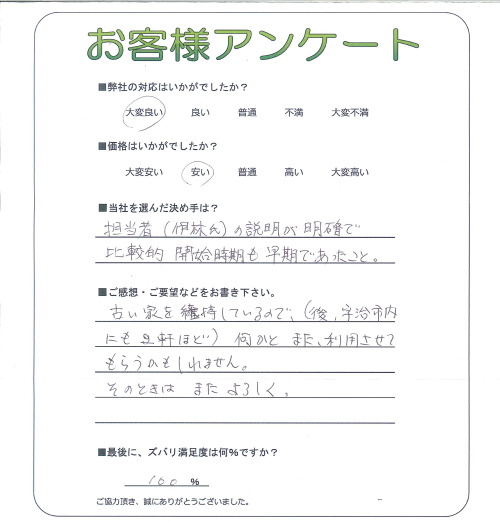 お客様アンケート
■弊社の対応はいかがでしたか？
大変良い 良い 普通 不満 大変不満
■価格はいかがでしたか？
大変安い 安い 普通 高い 大変高い
■当社を選んだ決め手は？
担当者（伊林氏）の説明が明確で
比較的 開始時期も早期であったこと。
■ご感想・ご要望などをお書き下さい。
古い家を維持しているので、（後、宇治市内
にも 軒ほど）何かと また、利用させて
もらうかもしれません。
そのときは またよろしく。
■最後に、ズバリ満足度は何％ですか？
100 ％
ご協力頂き、誠にありがとうございました。